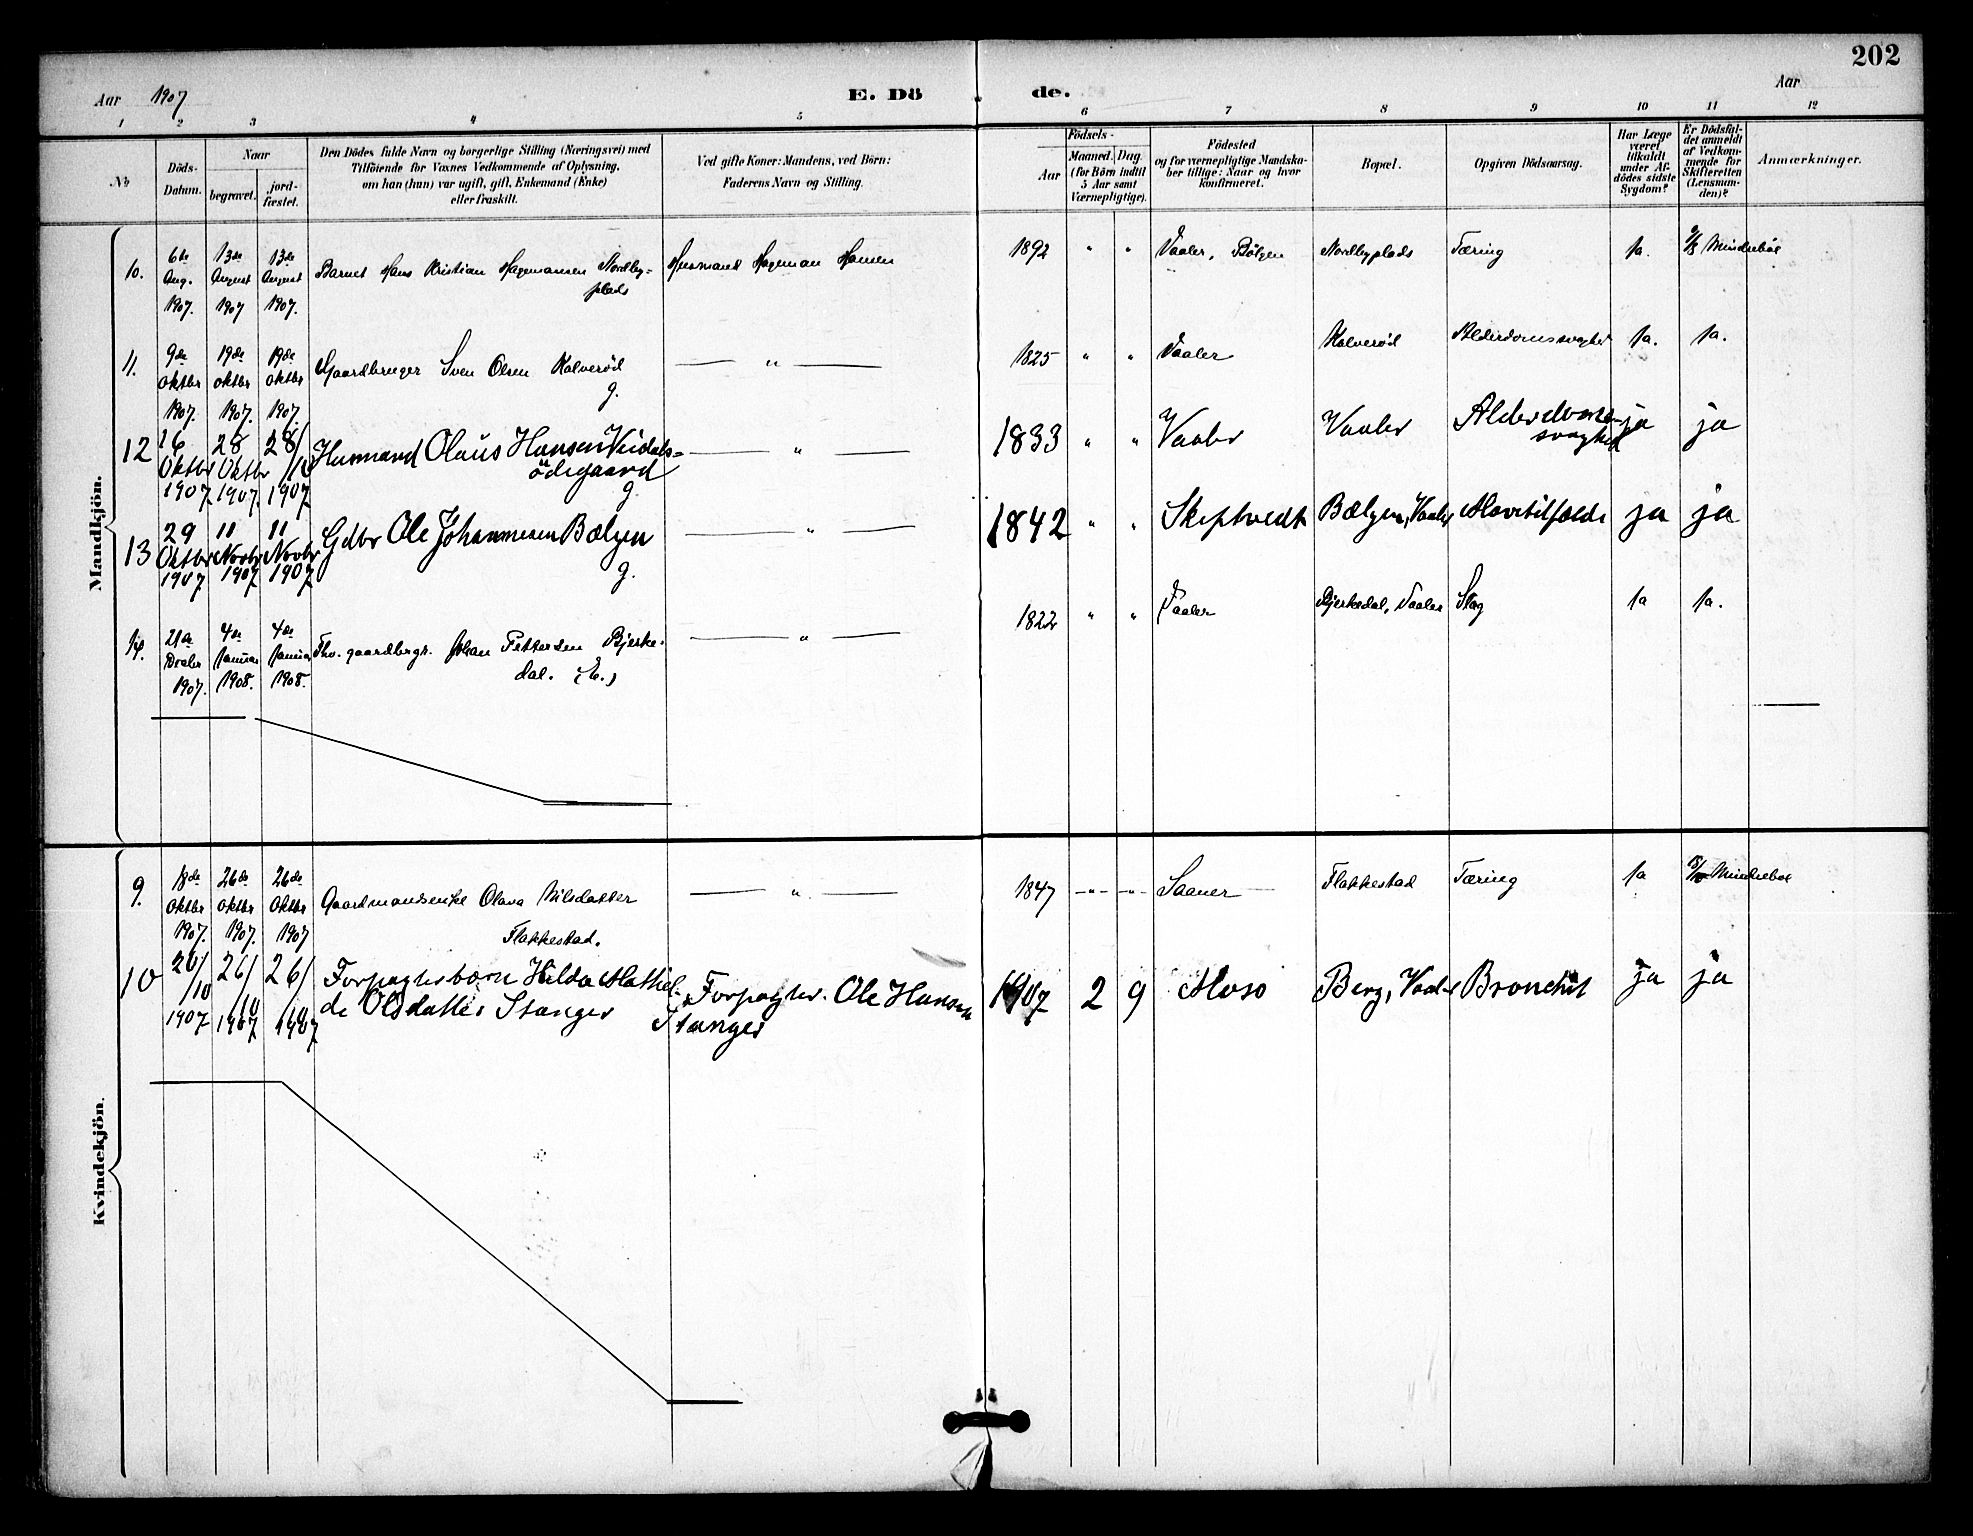 202
Aar 1907
E. Dö de.
Aar
1 2 3 4 5 6 7 8 9 10 11 12
No
Döds-
Datum.
Naar
begravet.
jord-
fæstet.
Den Dödes fulde Navn og borgerlige Stilling (Næringsvei) med
Tilföiende for Voxnes Vedkommende af Oplysning,
om han (hun) var ugift, gift, Enkemand (Enke)
eller fraskilt.
Ved gifte Koner: Mandens, ved Börn:
Faderens Navn og Stilling.
Födsels-
Aar
Maaned. Dag.
(for Börn indtil
5 Aar samt
Værnepligtige).
Födested
og for værnepligtige Mandska-
ber tillige: Naar og hvor
konfirmeret.
Bopæl.
Opgiven Dödsaarsag.
Har Læge
været
tilkaldt
under Af-
dödes sidste
Sygdom?
Er Dödsfal-
det anmeldt
af Vedkom-
mende for
Skifteretten
(Lensman-
den)?
Anmærkninger.
Mandkjön.
10. 6te Aug. 1907. 13de August 1907 13de August 1907. Barnet Hans Kristian Hagemansen Nordby=
plads
Husmand Hageman Hansen 1892 " " Vaaler, Bölgen Nordbyplads Tæring Ja. Mindrebøl
11. 9de Oktbr 1907. 19de Oktbr 1907. 19de Oktbr 1907. Gaardbruger Sven Olsen Kalverød
g.
" 1825 " " Vaaler Kalverød Alderdomssvaghed Ja. Ja.
12 16 Oktbr 1907. 28 Oktbr 1907. 28/10 1907 Husmand Olaus Hansen Veidals=
ödegaard
g.
" 1833 " " Vaaler Vaaler Alderdoms-
svaghed
ja ja
13 29 Oktbr 1907 11 Novbr 1907 11 Novbr 1907 Gdbr Ole Johannesen Bælgen
g.
" 1842 " " Skiptvedt Bælgen, Vaaler Slavetilfælde ja ja
14. 21de Decbr 1907. 4de Januar 1908. 4de Januar 1908. Fhv. gaardbrgr. Johan Pettersen Bjerke-
dal. (E.)
" 1822 " " Vaaler Bjerkedal, Vaaler Slag Ja Ja.
Kvindekjön.
9. 18de Oktbr 1907. 26de Oktbr 1907. 26de Oktbr 1907 Gaardmandsenke Olava Nilsdatter
Flakkestad.
" 1847 " " Saaner Flakkestad Tæring Ja Mindrebøl
10 20/10 1907 26/10 1907 26/10 1907 Forpagtersbarn Hilda Mathil-
de Olsdatter Stanger
Forpagter Ole Hansen
Stanger
1907 2 9 Moss Berg, Vaaler Bronchit ja ja